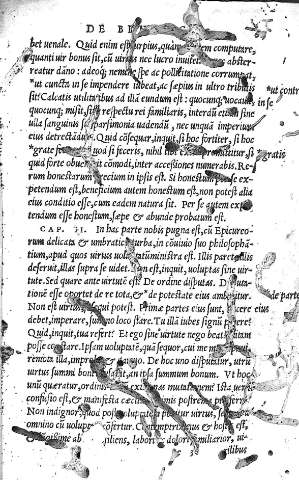 DE BE
bet uenale. Quid enim est turpius, quàm computare,
quanti uir bonus sit, cù uirtus nec lucro inuitet abster-
reatur dãno: adeoq; nemine spe ac pollicitatione corrumpat
ut cuncta in se impendere iubeat, ac sæpius in ultro tributis
sit? Calcatis utilitatibus ad illã eundum est: quocunq; uocat
quocunq; misit, sine respectu rei familiaris, interdũ etiam sine
ulla sanguinis sui parsimonia uadendũ, nec unquã imperium
eius detrectãdũ. Quid cõsequar, inquit, si hoc fortiter, si hoc
grate fecero? quod feceris, nihil tibi extra promittitur, si gratis
quid forte obuenerit cõmodi, inter accessiones numerabis. Re-
rum honestarum precium in ipsis est. Si honestum per se ex-
petendum est, beneficium autem honestum est, non potest alia
eius conditio esse, cum eadem natura sit. Per se autem expe-
tendum esse honestum, sæpe & abunde probatum est.
CAP. II. In hac parte nobis pugna est, cũ Epicureo-
rum delicata & umbratica turba, in cõuiuio suo philosophã-
tium, apud quos uirtus uoluptatũ ministra est. Illis paret, illis
deseruit, illas supra se uidet. Non est, inquit, uoluptas sine uir-
tute. Sed quare ante uirtutẽ est? De ordine disputas. De
tione esse oportet de re tota, & de potestate eius ambigitur.
Non est uirtus, si sequi potest. Primæ partes eius sunt,
debet, imperare, summo loco stare. Tu illã iubes signũ petere?
Quid, inquit, tua refert? Et ego sine uirtute nego beatam uitam
posse constare. Ipsam uoluptatẽ, quã sequor, cui me mancipaui,
remota illa, improbo & damno. De hoc uno disputatur, utrũ
uirtus summi boni causa sit, an ipsa summum bonum. Vt hoc
unũ quæratur, ordinis tantũ existimas mutationem? Ista uero
confusio est, & manifesta cæcitas
Non indignor, quod post uoluptatem ponitur uirtus, sed
omnino cũ uoluptate Contemptrix eius & hostis est,
& longissime ab illa resiliens, labori & dolori familiarior, ut
cilibus